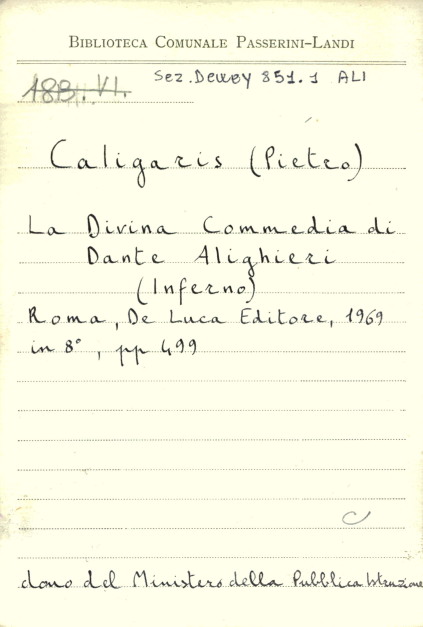 BIBLIOTECA COMUNALE PASSERINI-LANDI
Sez. Dewey 851.1 ALI
18B. VI.
Caligaris (Pietro)
La Divina Commedia di
Dante Alighieri
(Inferno)
Roma, De Luca Editore, 1969
in 8°, pp 499
dono del Ministero della Pubblica Istruzione